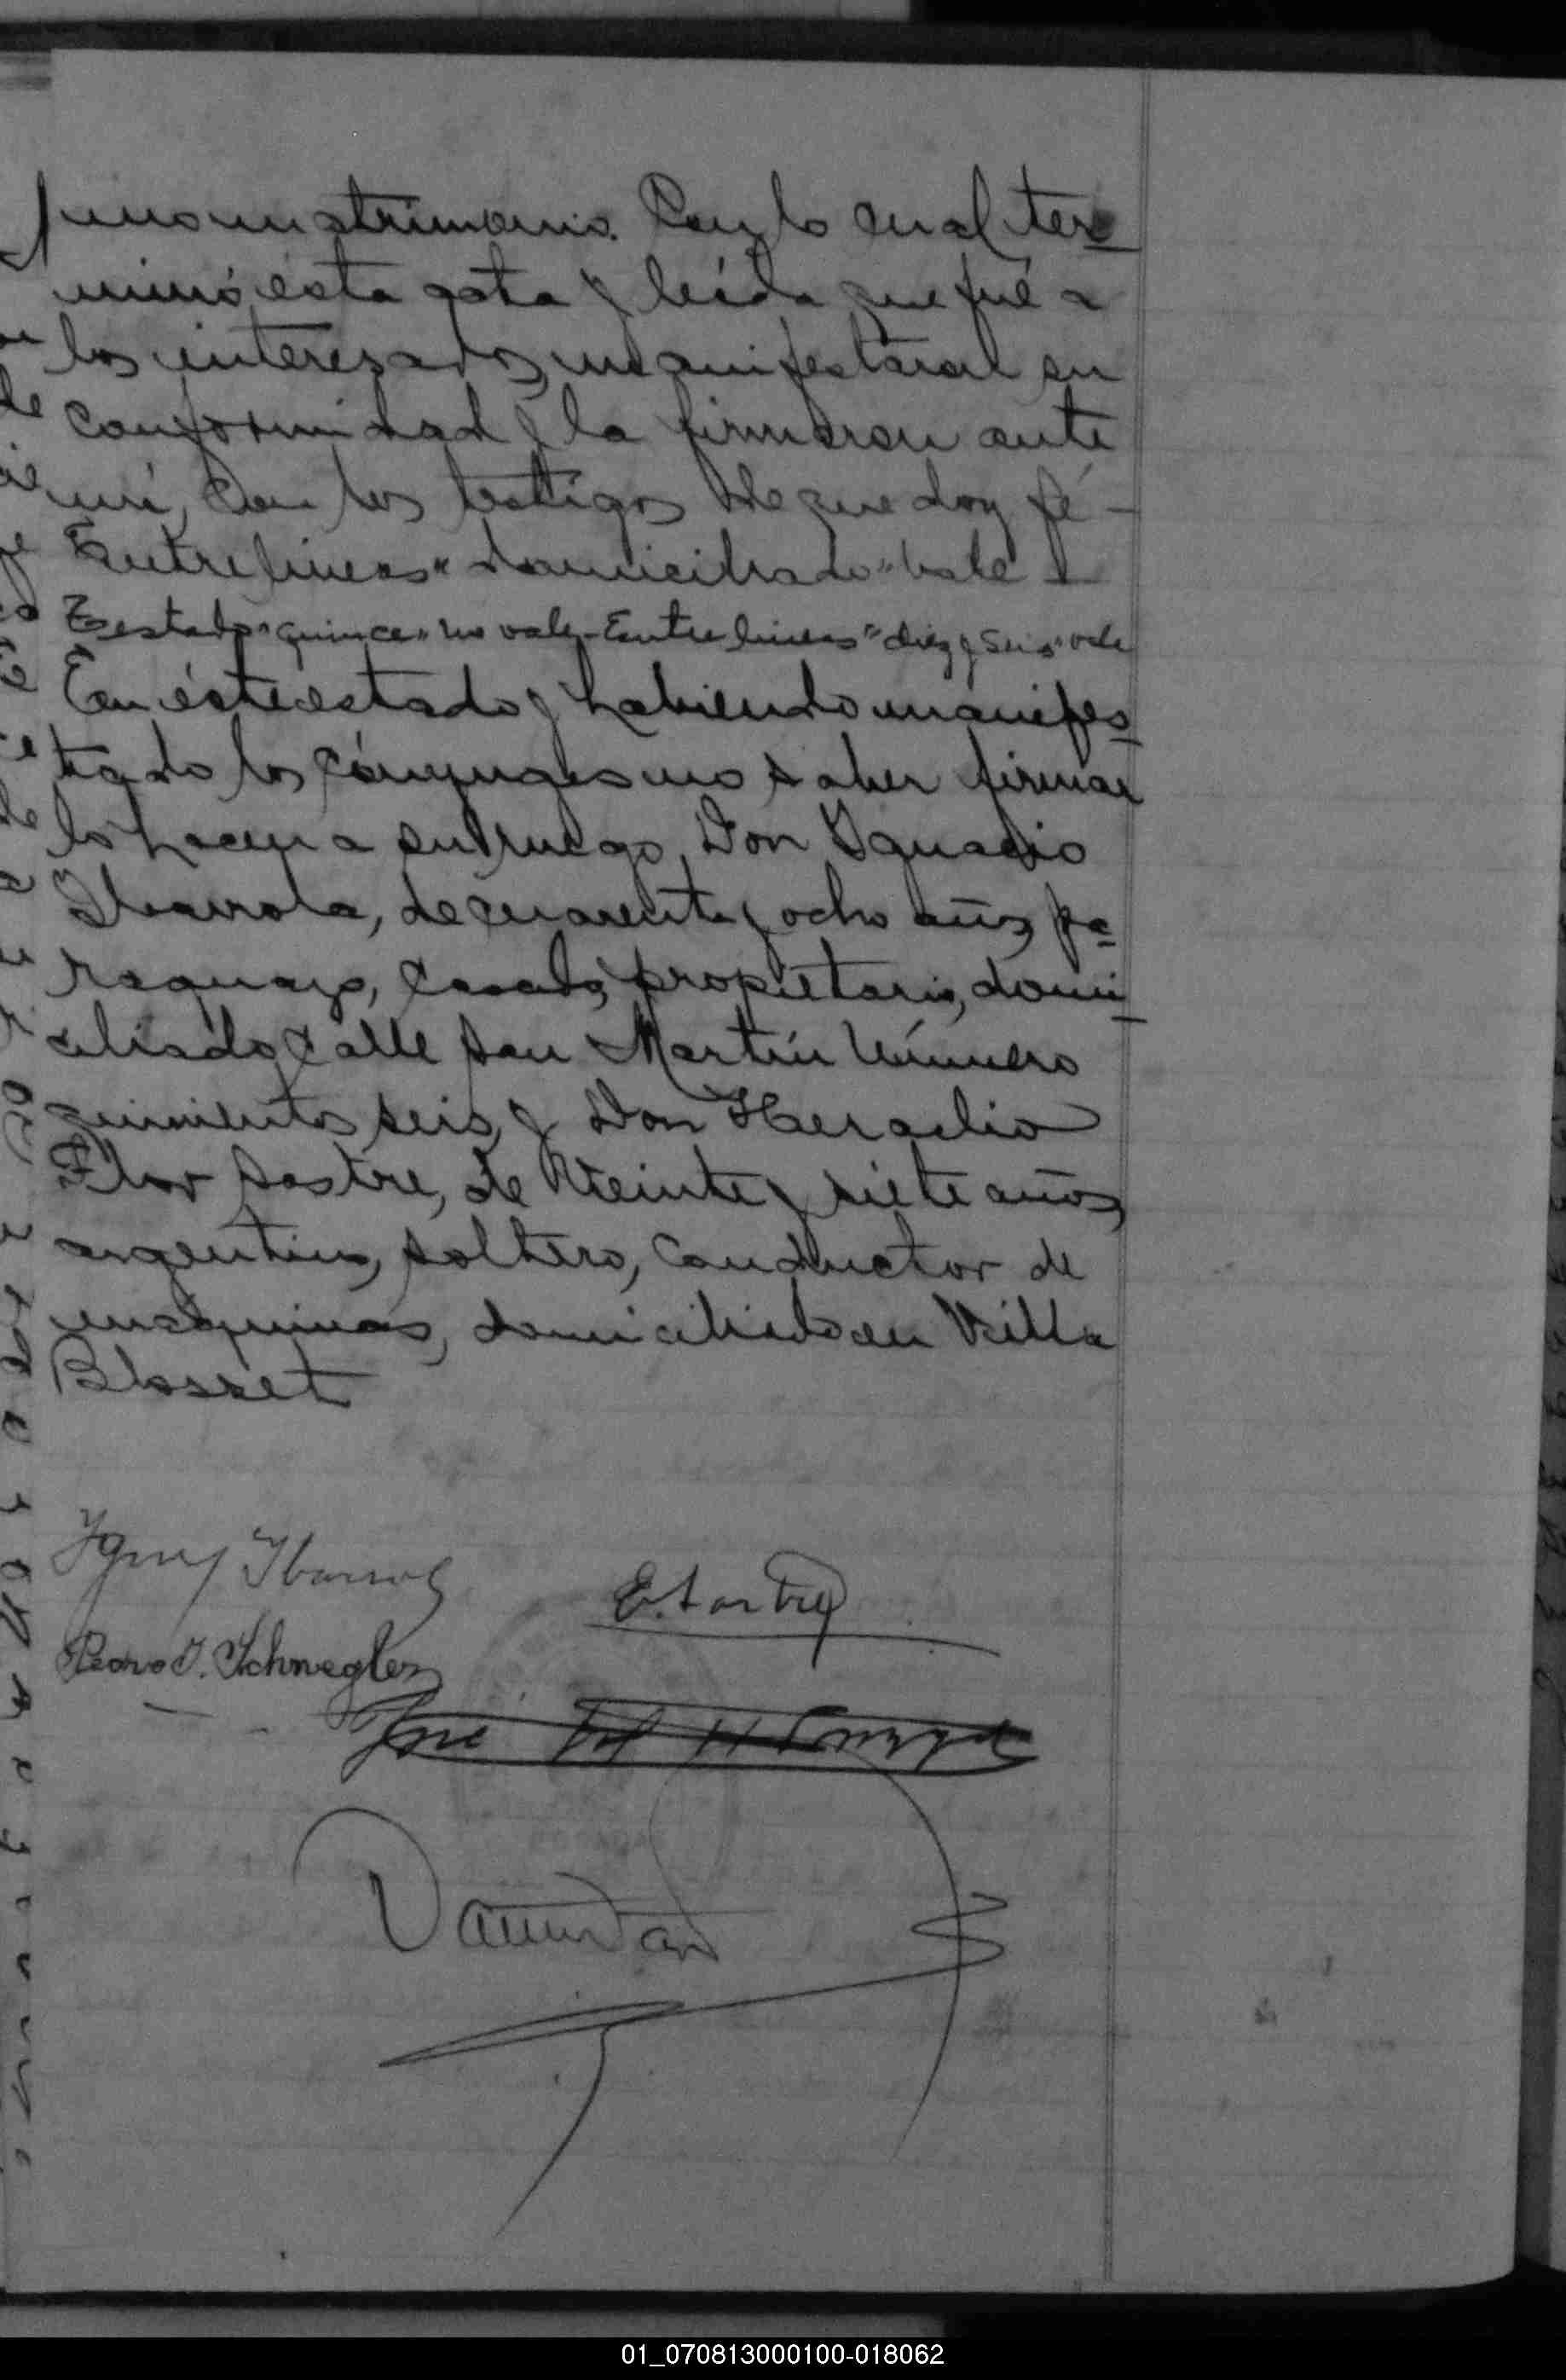 mo matrimonio. Con lo cual ter
minó ésta acta y leída que fué a
los interesados, manifestaron su
conformidad y la firmaron ante
mí, con los testigos de que doy fé-
Entrelíneas "domiciliado" vale
Testado "quince" no vale - Entre líneas "diez y seis" vale
En éste estado y habiendo manifes
tado los cónyuges no saber firmar
lo hacen a su ruego, Don Ignacio
Ibarrola, de cuarenta y ocho años, pa
raguayo, casado, propietario, domi
ciliado calle San Martín número
quinientos seis, y Don Heraclio
Flor Sastre, de veinte y siete años,
argentino, soltero, conductor de
máquinas, domiciliado en Villa
Blosset
Ibarrola
Pedro J. Schwegler
José